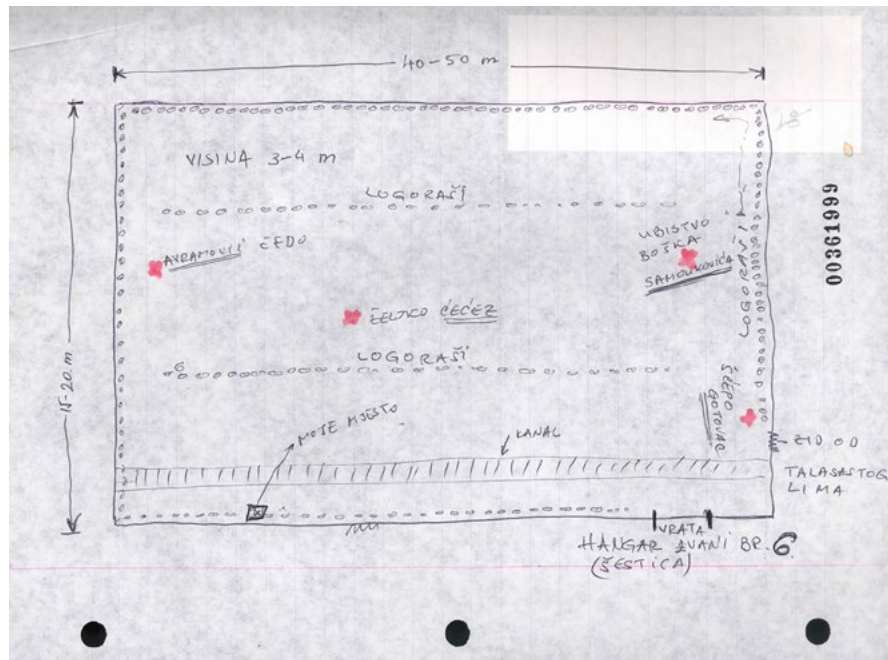 40-50 m
VISINA 3-4 m
LOGORAŠI
AVRAMOVIĆ ČEDO
UBISTVO
BOŠKA
SAMOUKOVIĆA
LOGORAŠI
00361999
ŽELJKO ĆEĆEZ
LOGORAŠI
15-20 m
ŠĆEPO
GOTOVAC
MOJE MJESTO
KANAL
ZID OD
TALASASTOG
LIMA
VRATA
HANGAR ZVANI BR. 6
(ŠESTICA)